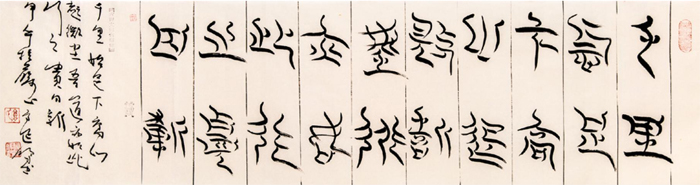 千里
始足
下高
山起
微塵
吾道
亦如
此行
之貴
日新
千里始足下高山
起微塵吾道亦如此
行之貴日新
甲午